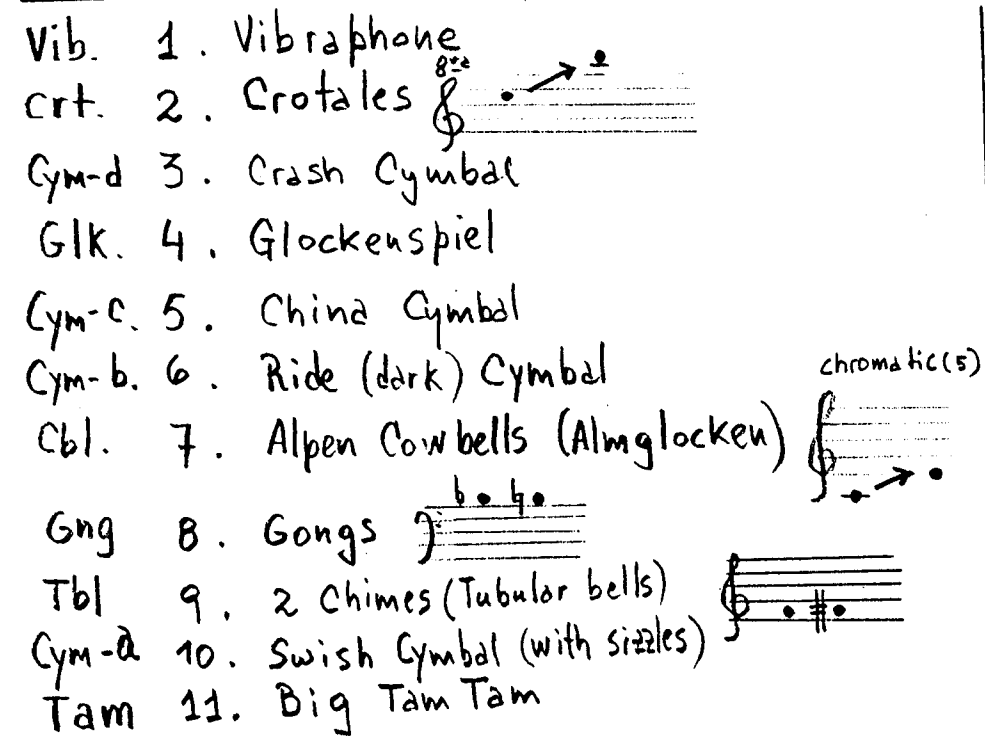 Vib. 1. Vibraphone
Crt. 2. Crotales 8va
Cym-d 3. Crash Cymbal
Glk. 4. Glockenspiel
Cym-c. 5. China Cymbal
Cym-b. 6. Ride (dark) Cymbal
chromatic (5)
Cbl. 7. Alpen Cowbells (Almglocken)
Gng 8. Gongs
Tbl 9. 2 Chimes (Tubular bells)
Cym-a 10. Swish Cymbal (with sizzles)
Tam 11. Big Tam Tam